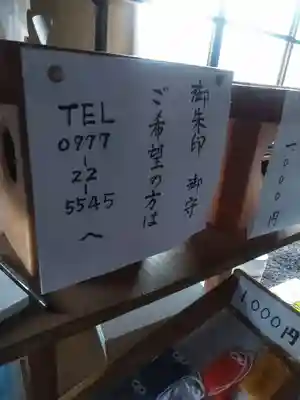 御朱印 御守
ご希望の方は
TEL
0977
-
22
-
5545
へ
一〇〇〇円
1,000円